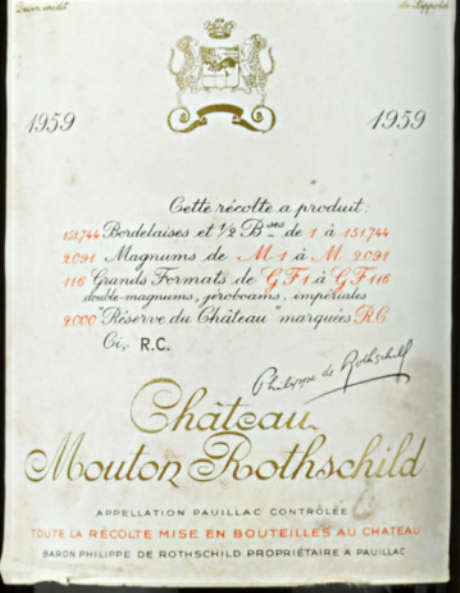 Dessin inédit de Lippold
1959 1959
Cette récolte a produit:
151,744 Bordelaises et ½ Bses de 1 à 151,744
2.091 Magnums de M 1 à M 2.091
116 Grands Formats de G F 1 à G F 116
double-magnums, jéroboams, impériales
2.000 "Réserve du Château" marquées R.C.
Ci, R.C.
Philippe de Rothschild
Château
Mouton Rothschild
APPELLATION PAUILLAC CONTRÔLÉE
TOUTE LA RÉCOLTE MISE EN BOUTEILLES AU CHATEAU
BARON PHILIPPE DE ROTHSCHILD PROPRIÉTAIRE A PAUILLAC